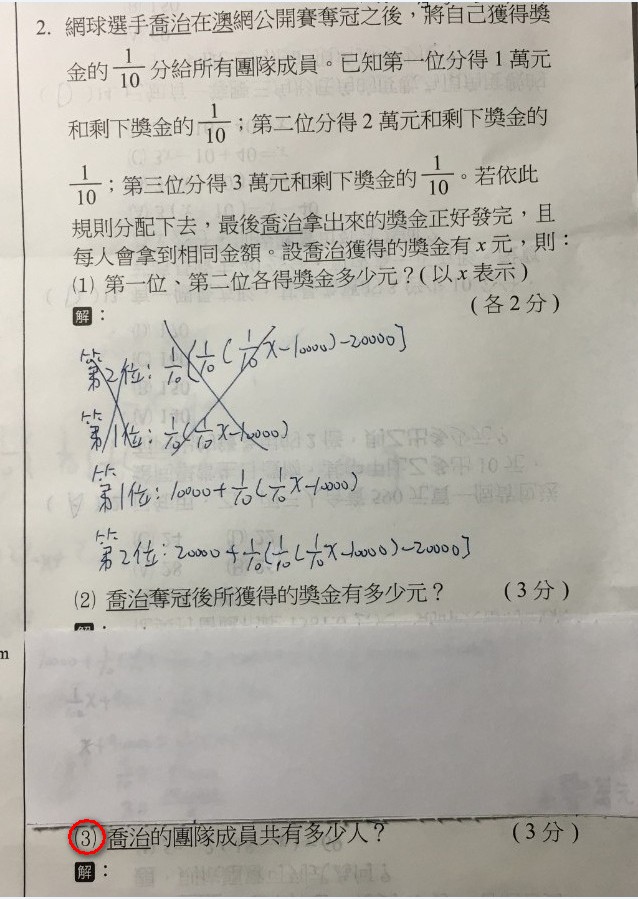 2. 網球選手喬治在澳網公開賽奪冠之後，將自己獲得獎
金的 1/10 分給所有團隊成員。已知第一位分得 1 萬元
和剩下獎金的 1/10；第二位分得 2 萬元和剩下獎金的
1/10；第三位分得 3 萬元和剩下獎金的 1/10。若依此
規則分配下去，最後喬治拿出來的獎金正好發完，且
每人會拿到相同金額。設喬治獲得的獎金有 x 元，則：
(1) 第一位、第二位各得獎金多少元？( 以 x 表示 )
( 各 2 分 )
解：
第2位：1/10[1/10(1/10x-10000)-20000]
第1位：1/10(1/10x-10000)
第1位：10000+1/10(1/10x-10000)
第2位：20000+1/10[1/10(1/10x-10000)-20000]
(2) 喬治奪冠後所獲得的獎金有多少元？ ( 3 分 )
m
(3) 喬治的團隊成員共有多少人？ ( 3 分 )
解：